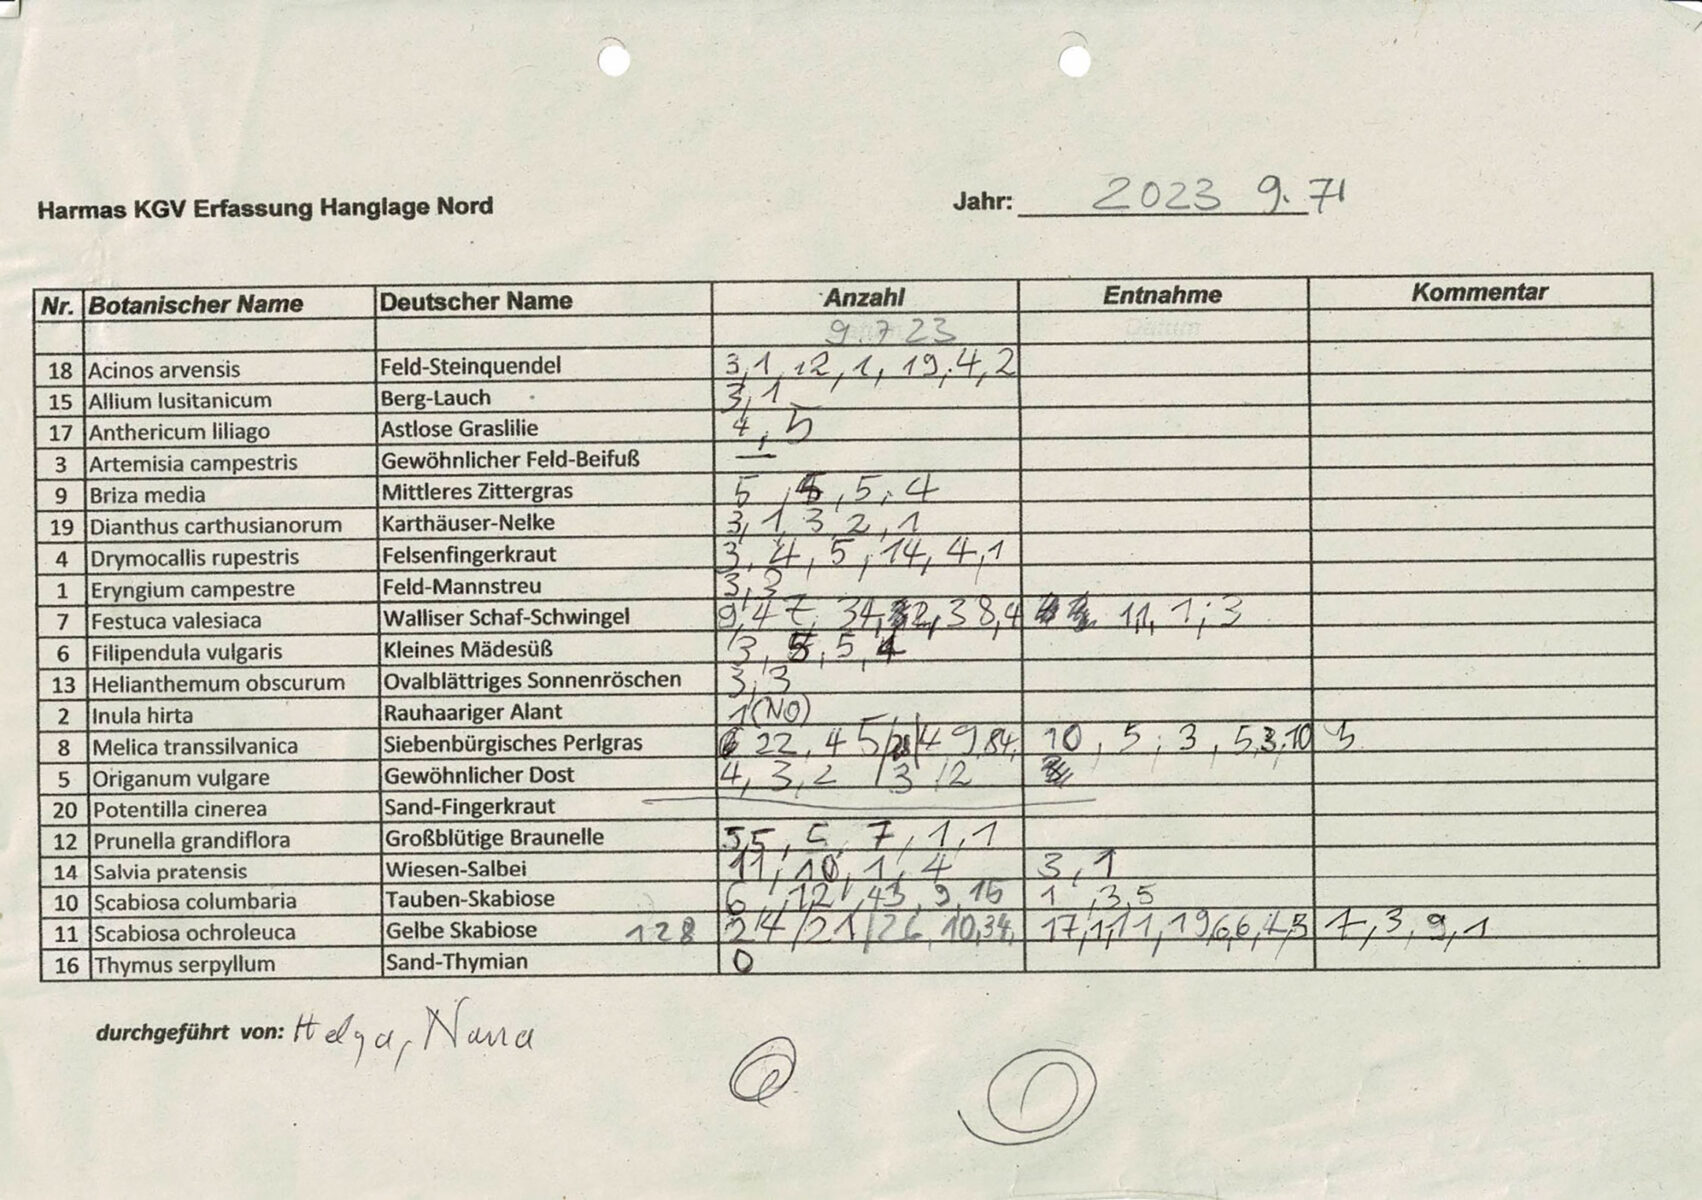 Harmas KGV Erfassung Hanglage Nord Jahr: 2023 9.7
Nr. Botanischer Name Deutscher Name Anzahl Entnahme Kommentar
9.7.23 Datum
18 Acinos arvensis Feld-Steinquendel 3, 1, 12, 1, 19, 4, 2
15 Allium lusitanicum Berg-Lauch 3, 1
17 Anthericum liliago Astlose Graslilie 4, 5
3 Artemisia campestris Gewöhnlicher Feld-Beifuß —
9 Briza media Mittleres Zittergras 5, 5, 4
19 Dianthus carthusianorum Karthäuser-Nelke 3, 1, 3, 2, 1
4 Drymocallis rupestris Felsenfingerkraut 3, 4, 5, 14, 4, 1
1 Eryngium campestre Feld-Mannstreu 3, 3
7 Festuca valesiaca Walliser Schaf-Schwingel 9, 47, 34, 38, 4 11, 1, 3
6 Filipendula vulgaris Kleines Mädesüß 3, 5, 5, 4
13 Helianthemum obscurum Ovalblättriges Sonnenröschen 3, 3
2 Inula hirta Rauhaariger Alant 1 (NO)
8 Melica transsilvanica Siebenbürgisches Perlgras 22, 45 49, 84, 10, 5, 3, 5, 3, 10 3
5 Origanum vulgare Gewöhnlicher Dost 4, 3, 2 / 3 / 2
20 Potentilla cinerea Sand-Fingerkraut
12 Prunella grandiflora Großblütige Braunelle 35, 5, 7, 1, 1
14 Salvia pratensis Wiesen-Salbei 11, 10, 1, 4 3, 1
10 Scabiosa columbaria Tauben-Skabiose 6, 12, 43, 9, 15 1, 3, 5
11 Scabiosa ochroleuca Gelbe Skabiose 128 24/21/26, 10, 34, 17, 1, 11, 19, 6, 6, 7, 3, 9, 1
16 Thymus serpyllum Sand-Thymian 0
durchgeführt von: Helga, Nana